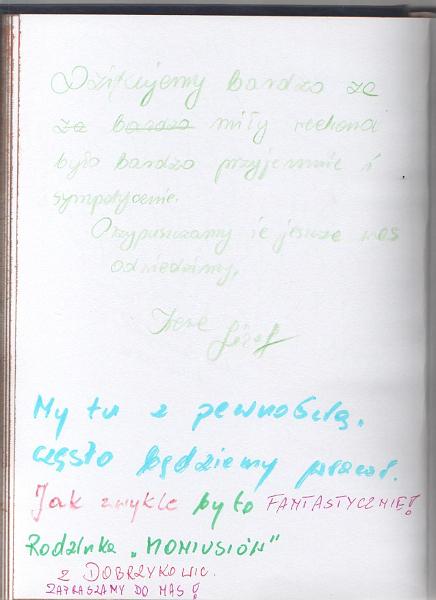 Dziękujemy bardzo za
za bardzo miły weekend
było bardzo przyjemnie i
sympatycznie.
Przypuszczamy że jeszcze was
odwiedzimy.
Józef
My tu z pewnością,
często będziemy wracać.
Jak zwykle było FANTASTYCZNIE!
Rodzinka „MONIUSIÓW"
z DOBRZYKOWIC.
ZAPRASZAMY DO NAS!